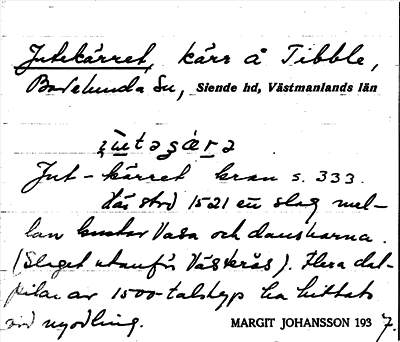 Jutekärret, kärr å Tibble,
Badelunda Sn, Siende hd, Västmanlands län
Jut-kärret kran s. 333.
Här stod 1521 en slag mel-
lan Gustav Vasa och danskarna.
(Slaget utanför Västerås). Flera dal-
pilar av 1500-talstyp ha hittats
vid nyodling.
MARGIT JOHANSSON 1937.